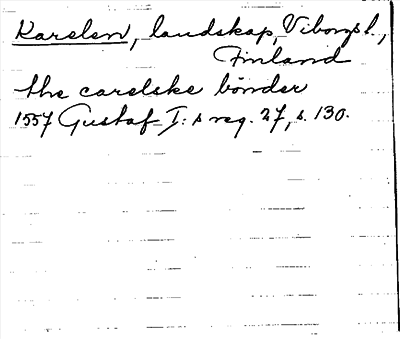 Karelen, landskap, Viborgs l.,
Finland
the carelske bönder
1557 Gustaf I:s reg. 27, s. 130.